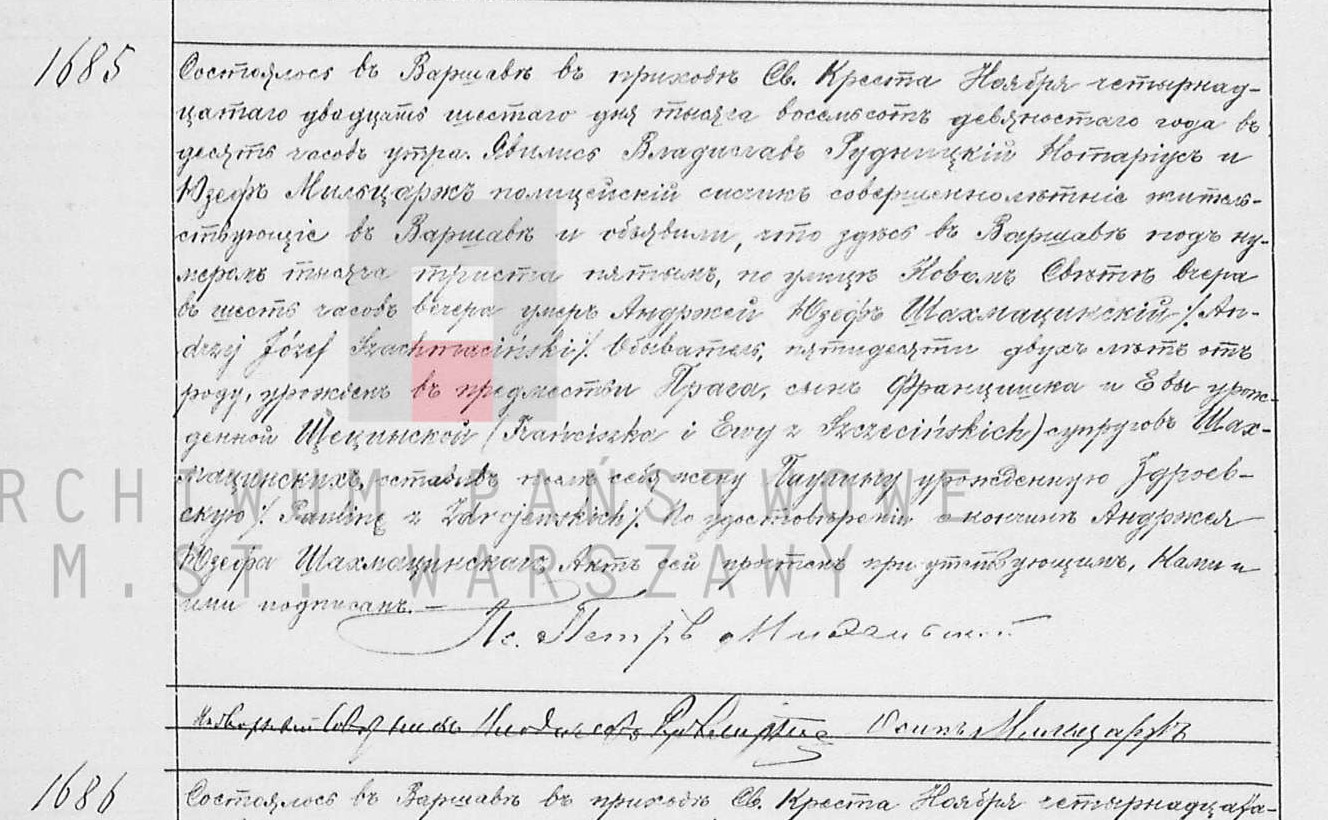 1685
Состоялось въ Варшавѣ въ приходѣ Св. Креста Ноября четырнад-
цатаго двадцать шестаго дня тысяча восемьсотъ девяностаго года въ
десять часовъ утра. Явились Владиславъ Рудницкій Нотаріусъ и
Юзефъ Мильцаржъ полицейскій сыщикъ совершеннолѣтніе житель-
ствующіе въ Варшавѣ и объявили, что здѣсь въ Варшавѣ подъ ну-
меромъ тысяча триста пятымъ, по улицѣ Новомъ Свѣтѣ вчера
въ шесть часовъ вечера умеръ Андржей Юзефъ Шахмацинскій /: An-
drzej Józef Szachmaciński :/. Обыватель, пятидесяти двухъ лѣтъ отъ
роду, урожденъ въ предмѣстьи Прага, сынъ Францишка и Евы урож-
денной Щецинской (Franciszka i Ewy z Szczecińskich) супруговъ Шах-
мацинскихъ, оставивъ послѣ себя жену Паулину урожденную Здроев-
скую /: Paulinę z Zdrojewskich :/. По удостовѣреніи о кончинѣ Андржея
Юзефа Шахмацинскаго Актъ сей прочтенъ присутствующимъ, Нами и
ими подписанъ. —
Кс. Петръ
Осипъ Мильцаржъ
1686
Состоялось въ Варшавѣ въ приходѣ Св. Креста Ноября четырнадцата-
ARCHIWUM PAŃSTWOWE
M.ST. WARSZAWY